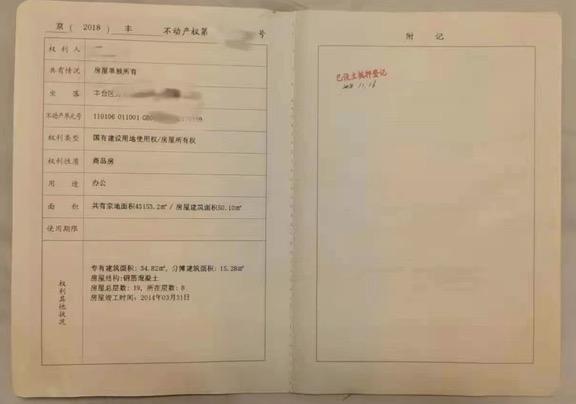 京 ( 2018 ) 丰 不动产权第 号
权利人
共有情况 房屋单独所有
坐落 丰台区
不动产单元号 110106 011001 GB0
权利类型 国有建设用地使用权/房屋所有权
权利性质 商品房
用途 办公
面积 共有宗地面积45153.2㎡ / 房屋建筑面积50.10㎡
使用期限
权利其他状况
专有建筑面积: 34.82㎡, 分摊建筑面积: 15.28㎡
房屋结构:钢筋混凝土
房屋总层数: 19, 所在层数: 8
房屋竣工时间: 2014年03月31日
附记
已设立抵押登记